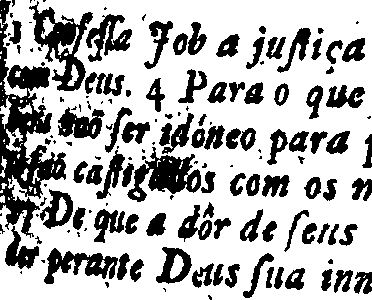 1 Confeſſa Job a juſtiça
com Deus. 4 Para o que
naõ ſer idóneo para
caſtigados com os
De que a dôr de ſeus
der perante Deus ſua inn